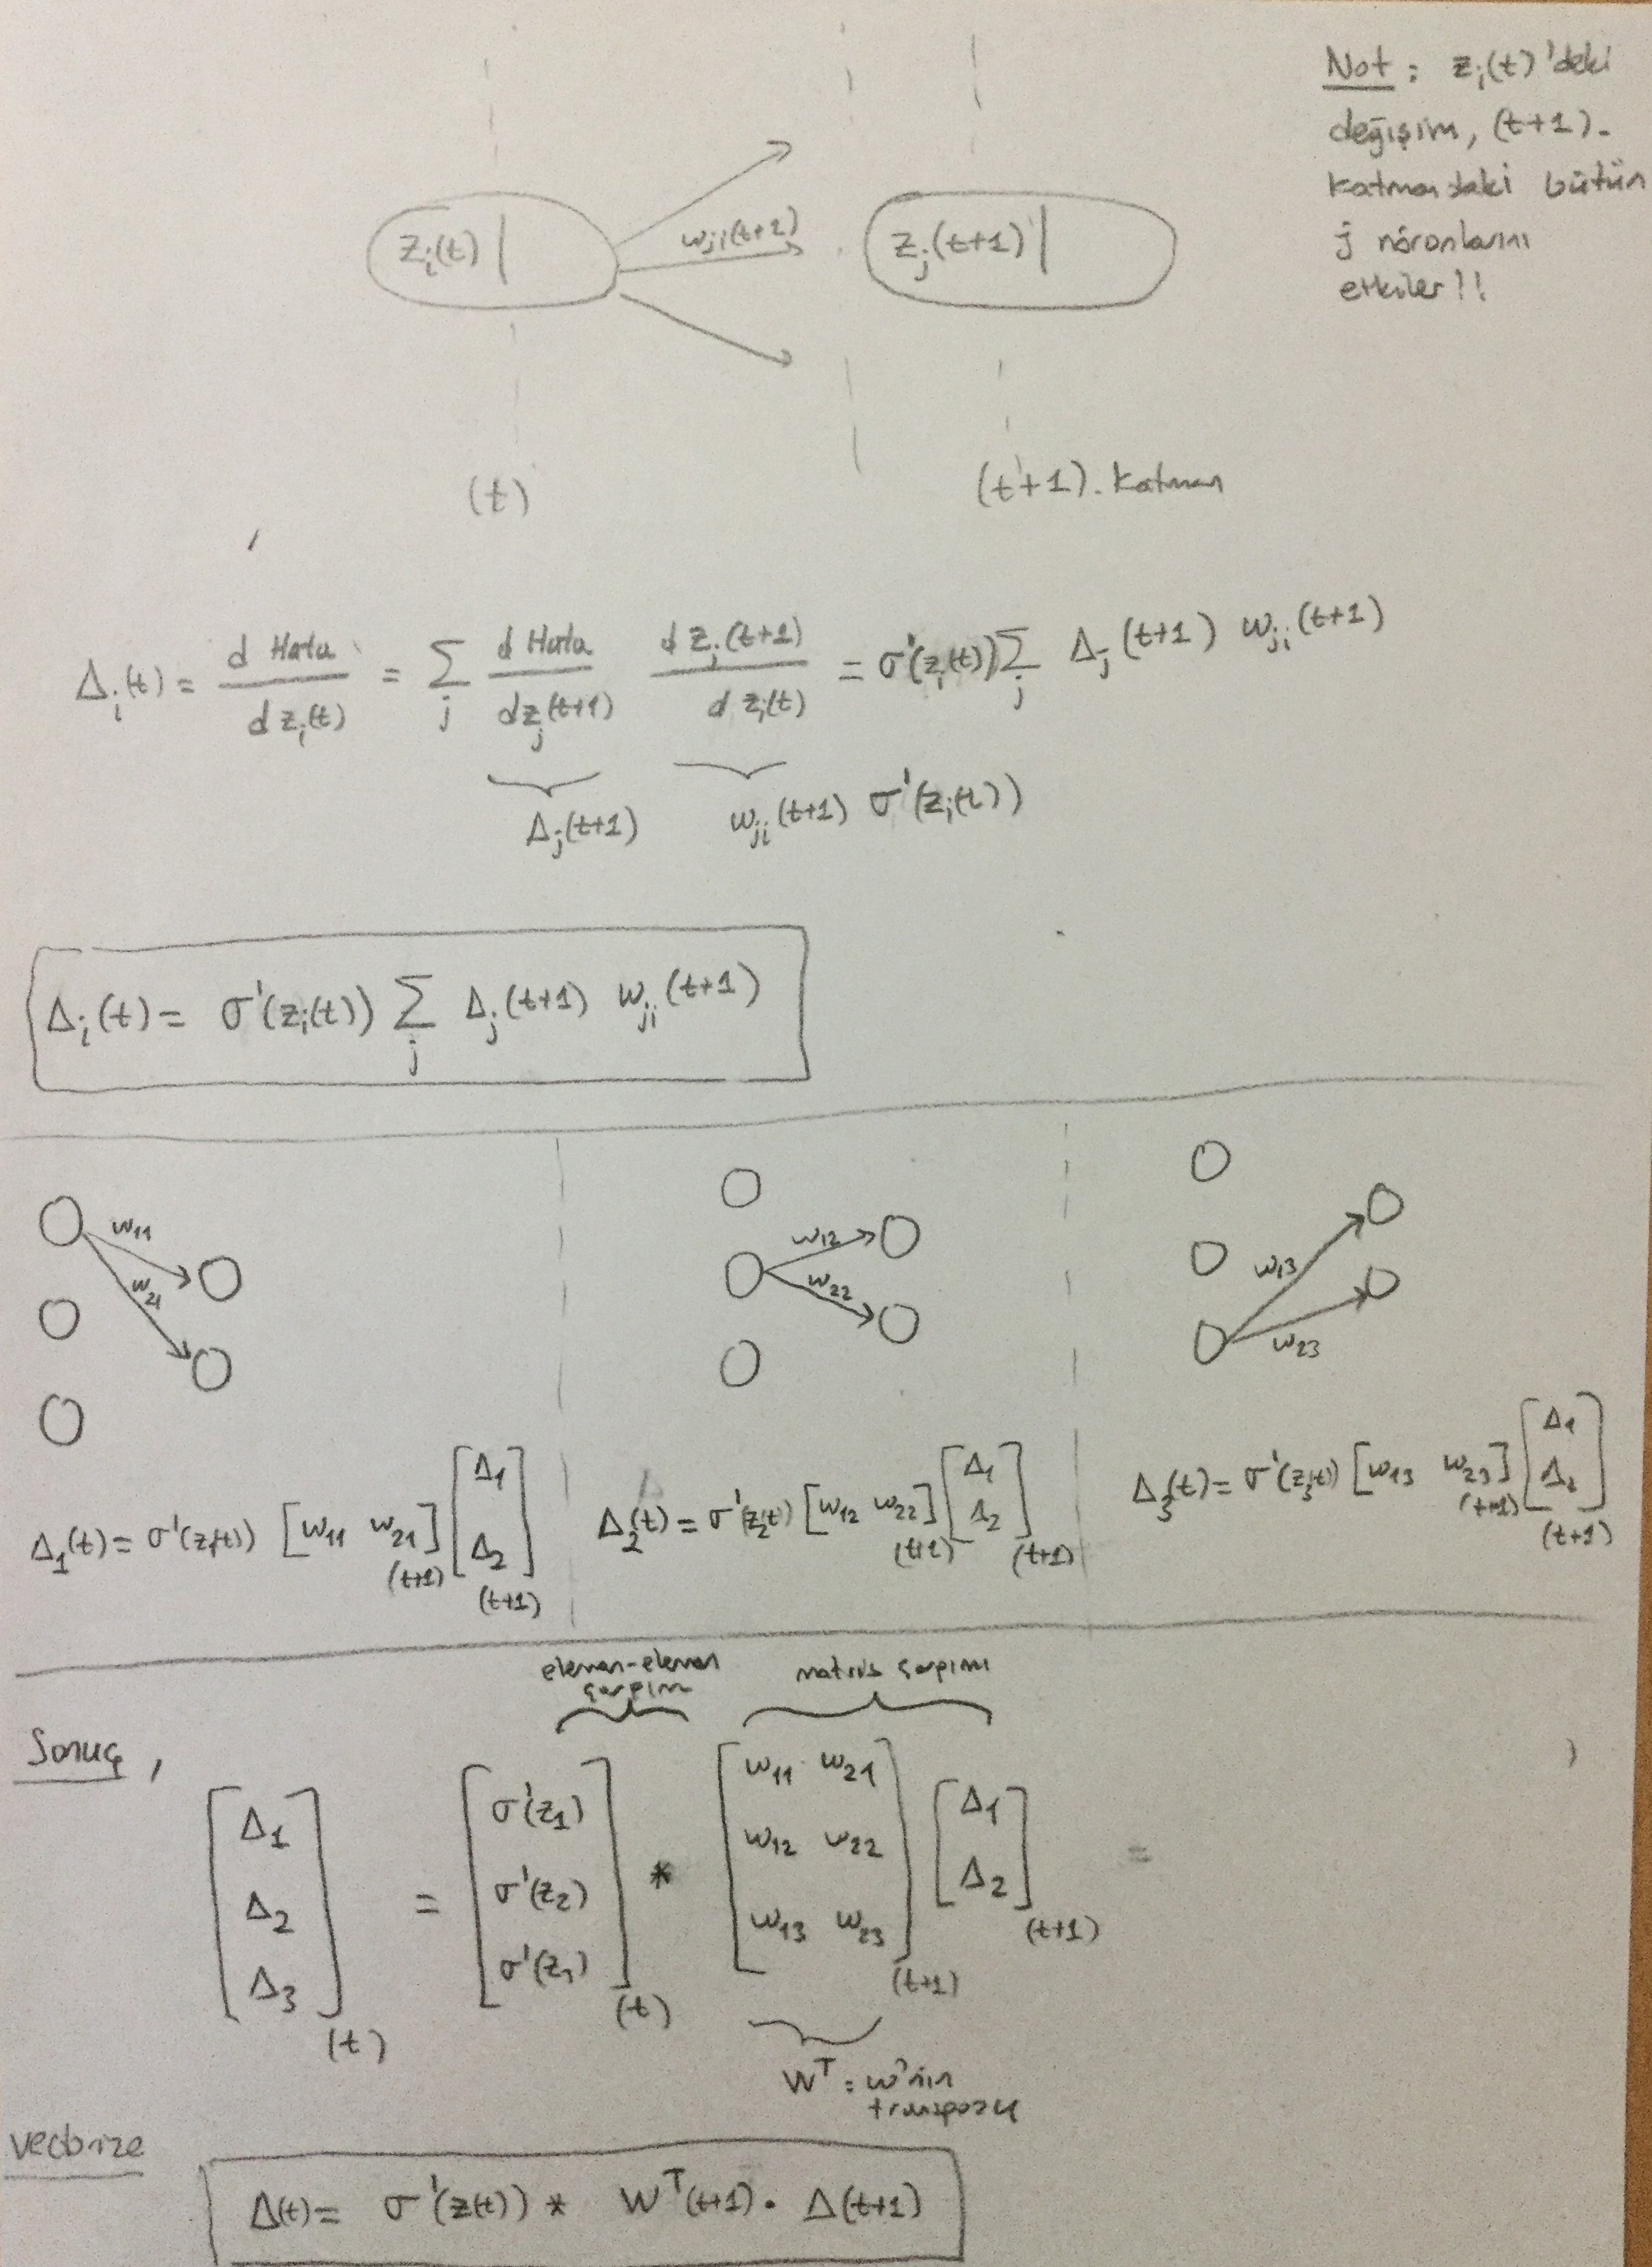 Not : z_i(t)'deki
değişim, (t+1).
katmandaki bütün
j nöronlarını
etkiler!!
z_i(t) |
w_ji(t+1)
z_j(t+1) |
(t)
(t+1). katman
Δ_i(t) = d Hata / d z_i(t) = Σ_j d Hata / d z_j(t+1) d z_j(t+1) / d z_i(t) = σ'(z_i(t)) Σ_j Δ_j(t+1) w_ji(t+1)
Δ_j(t+1) w_ji(t+1) σ'(z_i(t))
Δ_i(t) = σ'(z_i(t)) Σ_j Δ_j(t+1) w_ji(t+1)
w11
w21
w12
w22
w13
w23
Δ_1(t) = σ'(z_1(t)) [w11 w21](t+1) [Δ1 Δ2](t+1)
Δ_2(t) = σ'(z_2(t)) [w12 w22](t+1) [Δ1 Δ2](t+1)
Δ_3(t) = σ'(z_3(t)) [w13 w23](t+1) [Δ1 Δ2](t+1)
eleman-eleman
çarpım
matris çarpımı
Sonuç,
[Δ1 Δ2 Δ3](t) = [σ'(z1) σ'(z2) σ'(z3)](t) * [w11 w21 w12 w22 w13 w23](t+1) [Δ1 Δ2](t+1) =
W^T : w'nin
transpozu
vectorize
Δ(t) = σ'(z(t)) * W^T(t+1) · Δ(t+1)